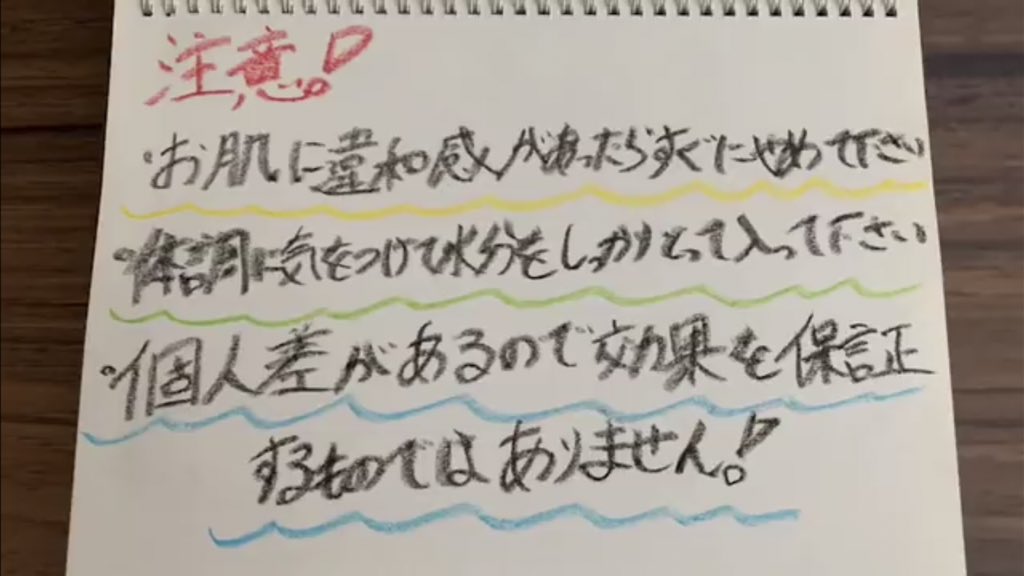 注意!
・お肌に違和感があったらすぐにやめて下さい
・体調に気をつけて水分をしっかりとって入って下さい
・個人差があるので効果を保証
するものではありません!